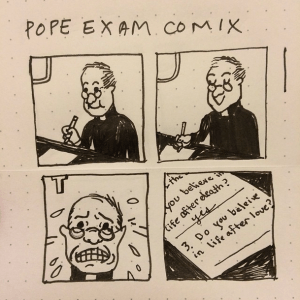 POPE EXAM COMIX
the
you believe i
life after death?
yes
3. Do you beleive
in life after love?